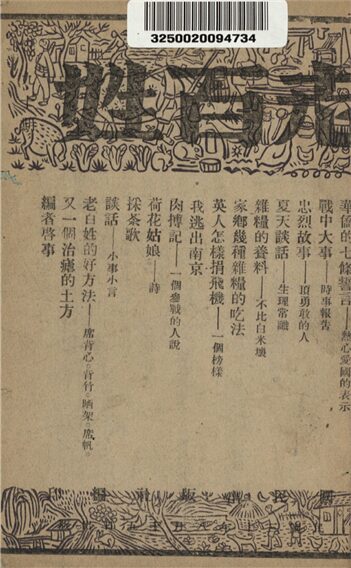 3250020094734
老百姓
華僑的七條誓言——熱心愛國的表示
戰中大事——時事報告
忠烈故事——頂勇敢的人
夏天談話——生理常識
雜糧的養料——不比白米壞
家鄉幾種雜糧的吃法
英人怎樣捐飛機——一個榜樣
我逃出南京
肉搏記——一個參戰的人說
荷花姑娘——詩
採茶歌
談話——小事小言
老百姓的好方法——席背心。背竹。晒架。席帆。
又一個治瘧的土方
編者啓事